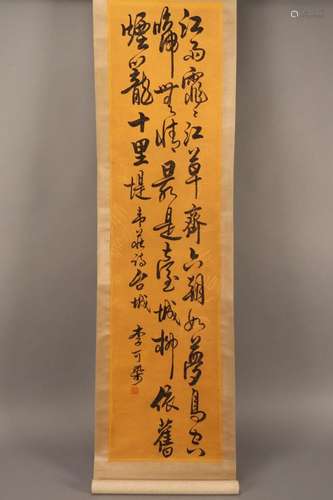 江雨霏〻江草齊六朝如夢鳥空
啼無情最是臺城柳依舊
煙籠十里堤 韋莊詩台城 李可染